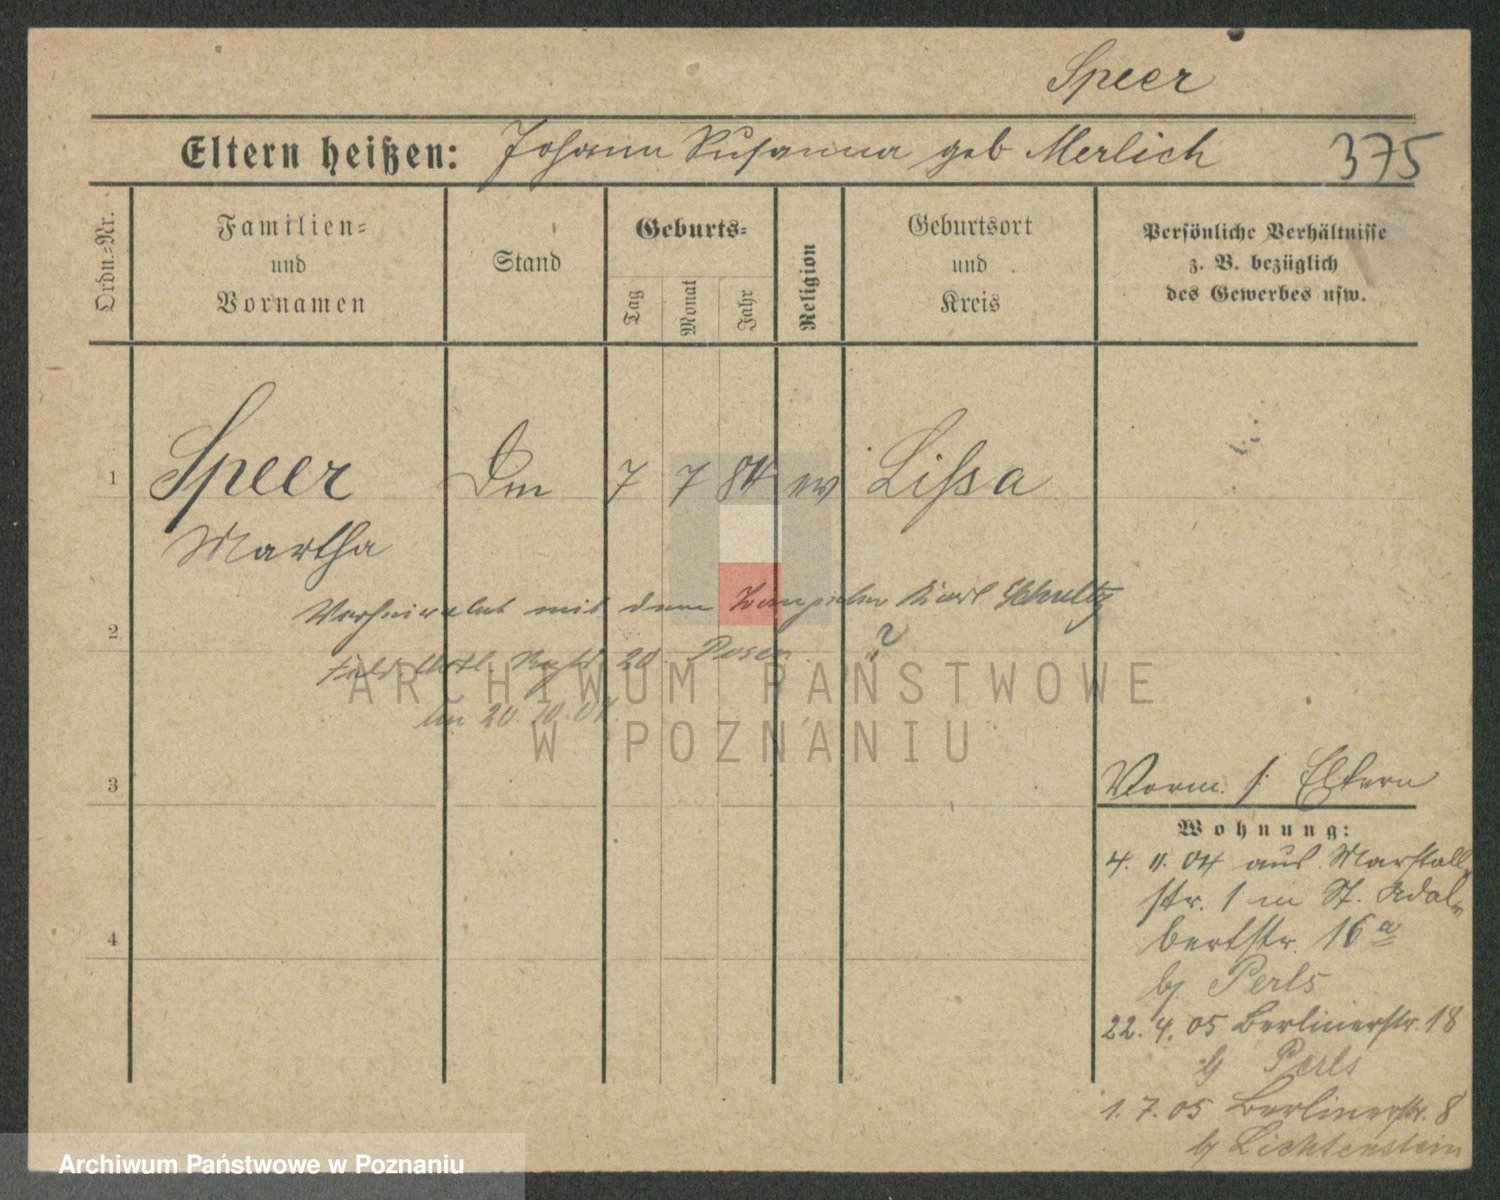 Speer
Eltern heißen: Johann Susanna geb Merlich 375
Ordn.-Nr.
Familien-
und
Vornamen
Stand
Geburts-
Tag
Monat
Jahr
Religion
Geburtsort
und
Kreis
Persönliche Verhältnisse
z. B. bezüglich
des Gewerbes usw.
1 Speer 7 7 84 ev Lissa
Martha
Verheiratet mit dem Karl Schultz
2
Feld Artl. Regt. 20. Posen ?
20. 10. 04
ARCHIWUM PAŃSTWOWE
W POZNANIU
3
Vorm. s. Eltern
Wohnung:
4. 11. 04 aus Marstall
str. 1 in St. Adal-
bertstr. 16 a
4
by Perls
22. 4. 05 Berlinerstr. 18
by Perls
1. 7. 05 Berlinerstr. 8
by Lichtenstein
Archiwum Państwowe w Poznaniu